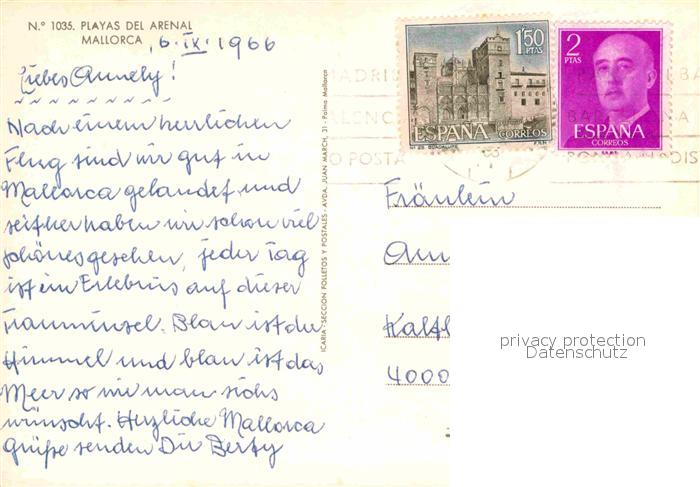 N.º 1035. PLAYAS DEL ARENAL
MALLORCA, 6.IX.1966
Liebes Annely!
Nach einem herrlichen
Flug sind wir gut in
Mallorca gelandet und
seither haben wir schon viel
schönes gesehen, jeder Tag
ist ein Erlebnis auf dieser
Trauminsel. Blau ist der
Himmel und blau ist das
Meer so wie man sichs
wünscht. Herzliche Mallorca
Grüße senden Dir Berty
ICARIA - SECCION FOLLETOS Y POSTALES - AVDA. JUAN MARCH, 31 - Palma Mallorca
1'50
PTAS
ESPAÑA
CORREOS
2
PTAS
ESPAÑA
CORREOS
Fräulein
Ann
Kalth
4000
privacy protection
Datenschutz